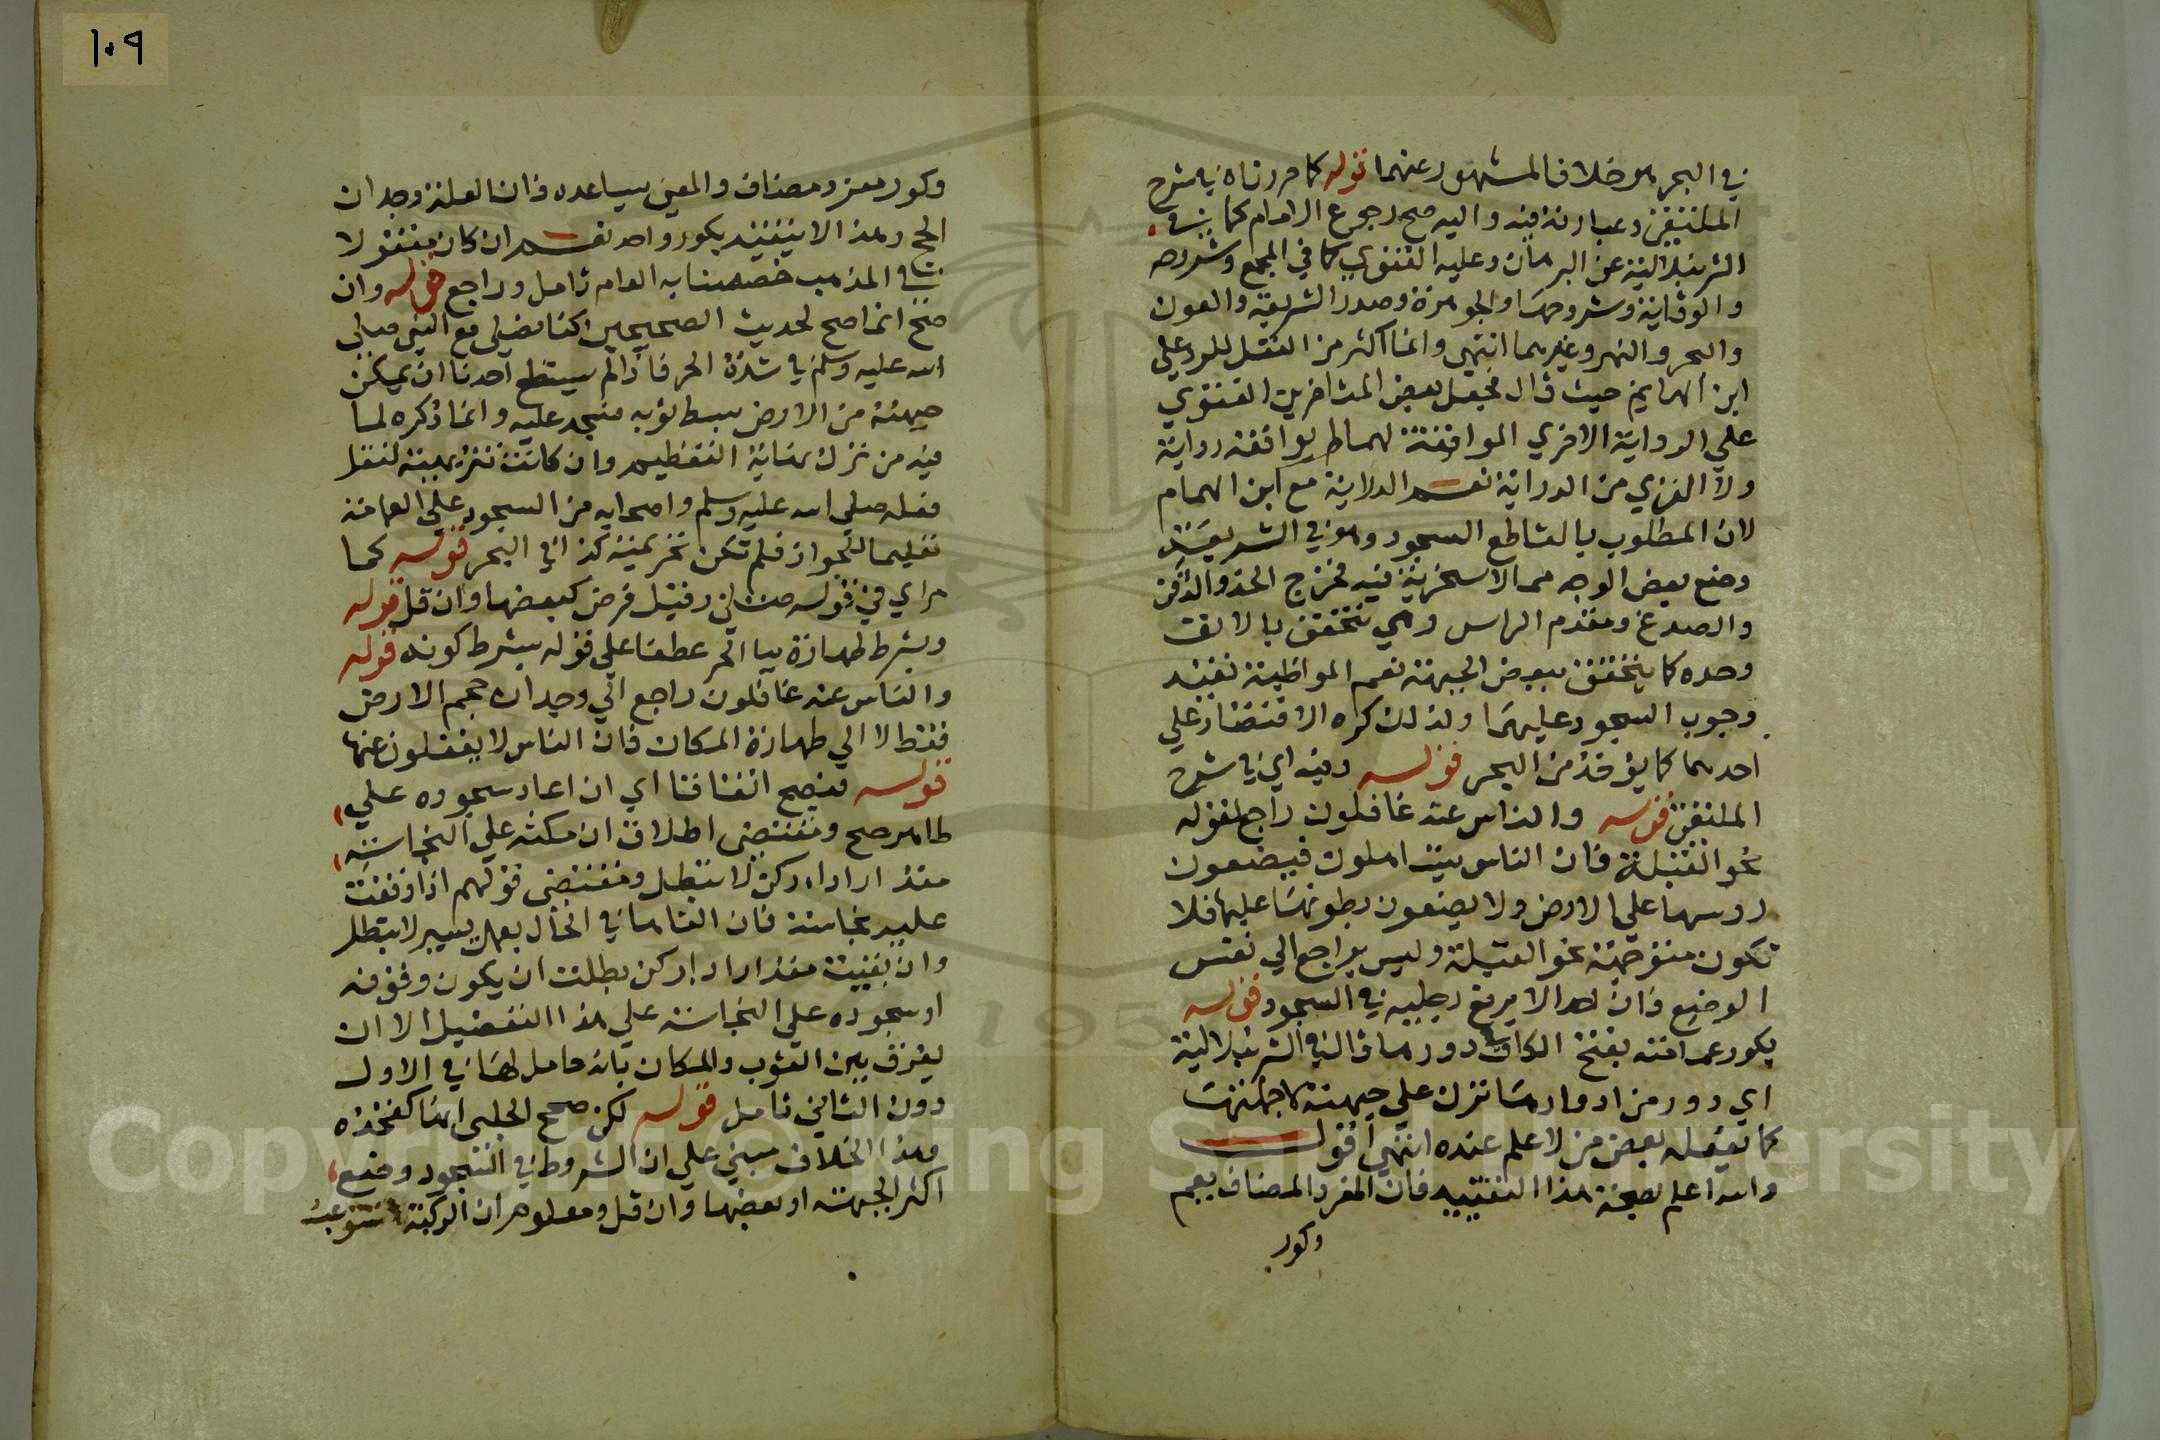 في البحر هو خلاف المشهور عنهما قوله كما حررناه في شرح
الملتقي وعبارته فيه واليه صح رجوع الامام كما في
الشرنبلالية عن البرهان وعليه الفتوي كما في المجمع وشروحه
والوقاية وشروحها والجوهرة وصدر الشريعة والعون
والبحر والنهر وغيرهما انتهي وانما اكثر من النقل للرد علي
ابن الهمام حيث قال فجعل بعض المتاخرين الفتوي
علي الرواية الاخري الموافقة لهما لم يوافقه رواية
ولا القوي من الدراية نعم الدلاية مع ابن الهمام
لان المطلوب بالقاطع السجود وهو في الشريعة
وضع بعض الوجه مما لا سخرية فيه فخرج الخد والذقن
والصدغ ومقدم الراس وهي تتحقق بالانف
وحده كما يتحقق ببعض الجبهة نعم المواظبة تفيد
وجوب السجود عليهما ولذلك كره الاقتصار علي
احدهما كما يؤخذ من البحر قوله وفيه اي في شرح
الملتقي قوله والناس عنه غافلون راجع لقوله
نحو القبلة فان الناس يتساهلون فيضعون
روسها علي الارض ولا يضعون بطونها عليها فلا
تكون متوجهة نحو القبلة وليس براجع الي نفس
الوضع فان احدا لا يرفع رجليه في السجود قوله
بكور عمامته بفتح الكاف دورها قال في الشرنبلالية
اي دور من ادوارها نزل علي جبهته لا جملتها
كما يفعله بعض من لا علم عنده انتهي اقول
والله اعلم بصحة هذا التقييد فان المفرد المضاف يعم
وكور
١٠٩
وكور مفرد مضاف والمعني يساعده فان العلة وجدان
الحجم وهذا لا يتقيد بكور واحد نعم ان كان منقولا
في المذهب خصصنا به العام تامل وراجع قوله وان
صح انما صح لحديث الصحيحين كنا نصلي مع النبي صلي
الله عليه وسلم في شدة الحر فاذا لم يستطع احدنا ان يمكن
جبهته من الارض بسط ثوبه فسجد عليه وانما ذكره لما
فيه من ترك نهاية التعظيم وان كانت تنزيهية لنقل
فعله صلي الله عليه وسلم واصحابه من السجود علي العمامة
تعليما للجواز فلم تكن تحريمية كذا في البحر قوله كما
مر اي في قوله وقيل فرض كبعضها وان قل قوله
وبشرط طهارة بالجر عطفا علي قوله بشرط كونه قوله
والناس عنه غافلون راجع الي وجدان حجم الارض
فقط لا الي طهارة المكان فان الناس لا يغفلون عنها
قوله فيصح اتفاقا اي ان اعاد سجوده علي
طاهر صح ومقتضي اطلاق ان مكثه علي النجاسة
مقدار اداء ركن لا تبطل ومقتضي قولهم اذا وقعت
عليه نجاسة فان القاها في الحال بعمل يسير لا تبطل
وان بقيت مقدار اداء ركن بطلت ان يكون وقوفه
او سجوده علي النجاسة علي هذا التفصيل الا ان
يفرق بين الثوب والمكان بانه حامل لها في الاول
دون الثاني تامل قوله لكن صحح الحلبي انها كفخذه
وهذا الخلاف مبني علي ان الشرط في السجود وضع
اكثر الجبهة او بعضها وان قل ومعلوم ان الركبة تستوعب
Copyright © King Saud University
195